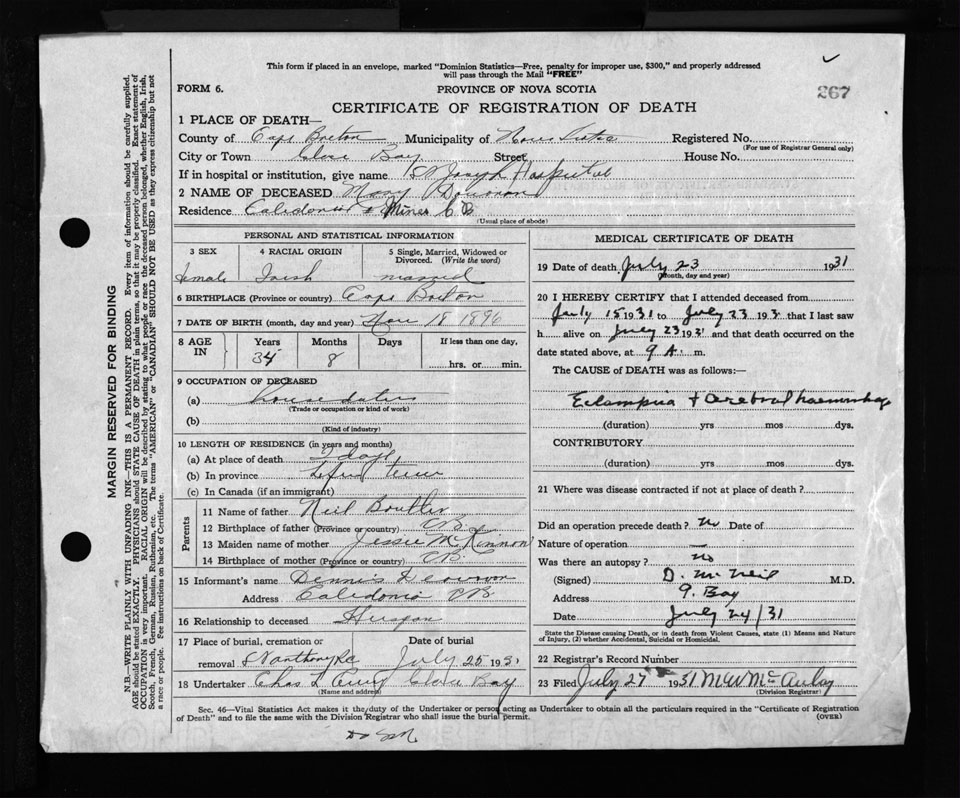 This form if placed in an envelope, marked "Dominion Statistics—Free, penalty for improper use, $300," and properly addressed
will pass through the Mail "FREE"
FORM 6.
PROVINCE OF NOVA SCOTIA
267
CERTIFICATE OF REGISTRATION OF DEATH
1 PLACE OF DEATH—
County of Cape Breton Municipality of Registered No.
(For use of Registrar General only)
City or Town Bay Street House No.
If in hospital or institution, give name St Joseph Hospital
2 NAME OF DECEASED Mary Donovan
Residence Caledonia Mines C B
(Usual place of abode)
PERSONAL AND STATISTICAL INFORMATION
3 SEX 4 RACIAL ORIGIN 5 Single, Married, Widowed or
Divorced. (Write the word)
female Irish married
6 BIRTHPLACE (Province or country) Cape Breton
7 DATE OF BIRTH (month, day and year) Nov 18 1896
8 AGE IN Years Months Days If less than one day,
34 8 hrs. or min.
9 OCCUPATION OF DECEASED
(a) house duties
(Trade or occupation or kind of work)
(b)
(Kind of industry)
10 LENGTH OF RESIDENCE (in years and months)
(a) At place of death days
(b) In province life time
(c) In Canada (if an immigrant)
Parents
11 Name of father Neil Boutlin
12 Birthplace of father (Province or country) CB
13 Maiden name of mother Jessie McKinnon
14 Birthplace of mother (Province or country) CB
15 Informant's name Dennis Donovan
Address Caledonia CB
16 Relationship to deceased
17 Place of burial, cremation or Date of burial
removal St Anthony July 25 1931
18 Undertaker Chas Bay
(Name and address)
MEDICAL CERTIFICATE OF DEATH
19 Date of death July 23 1931
(Month, day and year)
20 I HEREBY CERTIFY that I attended deceased from
July 15 1931 to July 23 193 that I last saw
h alive on July 23 1931 and that death occurred on the
date stated above, at 9 A. m.
The CAUSE of DEATH was as follows:—
Eclampsia + Cerebral haemorrhage
(duration) yrs mos dys.
CONTRIBUTORY
(duration) yrs mos dys.
21 Where was disease contracted if not at place of death?
Did an operation precede death? No Date of
Nature of operation —
Was there an autopsy? No
(Signed) D. McNeil M.D.
Address G. Bay
Date July 24/31
State the Disease causing Death, or in death from Violent Causes, state (1) Means and Nature
of Injury, (2) whether Accidental, Suicidal or Homicidal.
22 Registrar's Record Number
23 Filed July 27 1931 M W McAulay
(Division Registrar)
Sec. 46—Vital Statistics Act makes it the duty of the Undertaker or person acting as Undertaker to obtain all the particulars required in the "Certificate of Registration
of Death" and to file the same with the Division Registrar who shall issue the burial permit.
(OVER)
MARGIN RESERVED FOR BINDING
N.B.—WRITE PLAINLY WITH UNFADING INK—THIS IS A PERMANENT RECORD. Every item of information should be carefully supplied.
AGE should be stated EXACTLY. PHYSICIANS should STATE CAUSE OF DEATH in plain terms, so that it may be properly classified. Exact statement of
OCCUPATION is very important. RACIAL ORIGIN will be described by stating to what people or race the deceased person belonged, whether English, Irish,
Scotch, French, German, Russian, Ruthenian, etc. The terms "AMERICAN" or "CANADIAN" SHOULD NOT BE USED as they express citizenship but not
a race or people. See instructions on back of Certificate.